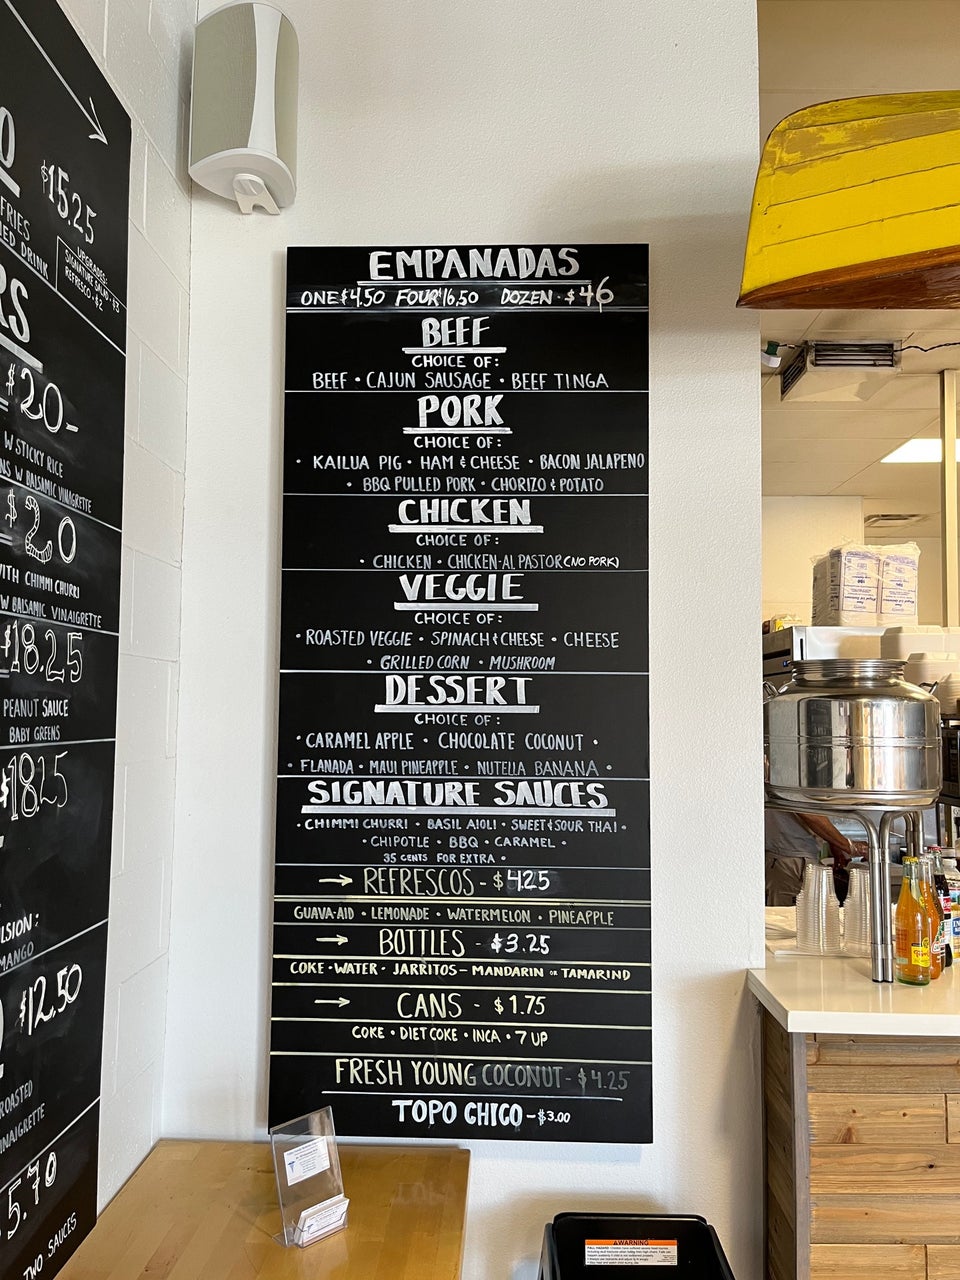 $15.25
FRIES
DRINK
UPGRADES:
SIGNATURE SALAD - $3
REFRESCO - $2
RS
$20-
W STICKY RICE
W BALSAMIC VINAGRETTE
$20
WITH CHIMMI CHURRI
W BALSAMIC VINAIGRETTE
$18.25
PEANUT SAUCE
BABY GREENS
$18.25
MANGO
$12.50
ROASTED
5.70
TWO SAUCES
EMPANADAS
ONE $4.50 FOUR $16.50 DOZEN - $46
BEEF
CHOICE OF:
BEEF • CAJUN SAUSAGE • BEEF TINGA
PORK
CHOICE OF:
• KAILUA PIG • HAM & CHEESE • BACON JALAPENO
• BBQ PULLED PORK • CHORIZO & POTATO
CHICKEN
CHOICE OF:
• CHICKEN • CHICKEN-AL PASTOR (NO PORK)
VEGGIE
CHOICE OF:
• ROASTED VEGGIE • SPINACH & CHEESE • CHEESE
• GRILLED CORN • MUSHROOM
DESSERT
CHOICE OF:
• CARAMEL APPLE • CHOCOLATE COCONUT •
• FLANADA • MAUI PINEAPPLE • NUTELLA BANANA •
SIGNATURE SAUCES
• CHIMMI CHURRI • BASIL AIOLI • SWEET & SOUR THAI •
• CHIPOTLE • BBQ • CARAMEL •
35 CENTS FOR EXTRA •
→ REFRESCOS - $4.25
GUAVA-AID • LEMONADE • WATERMELON • PINEAPPLE
→ BOTTLES - $3.25
COKE • WATER • JARRITOS - MANDARIN OR TAMARIND
→ CANS - $1.75
COKE • DIET COKE • INCA • 7 UP
FRESH YOUNG COCONUT - $4.25
TOPO CHICO - $3.00
WARNING